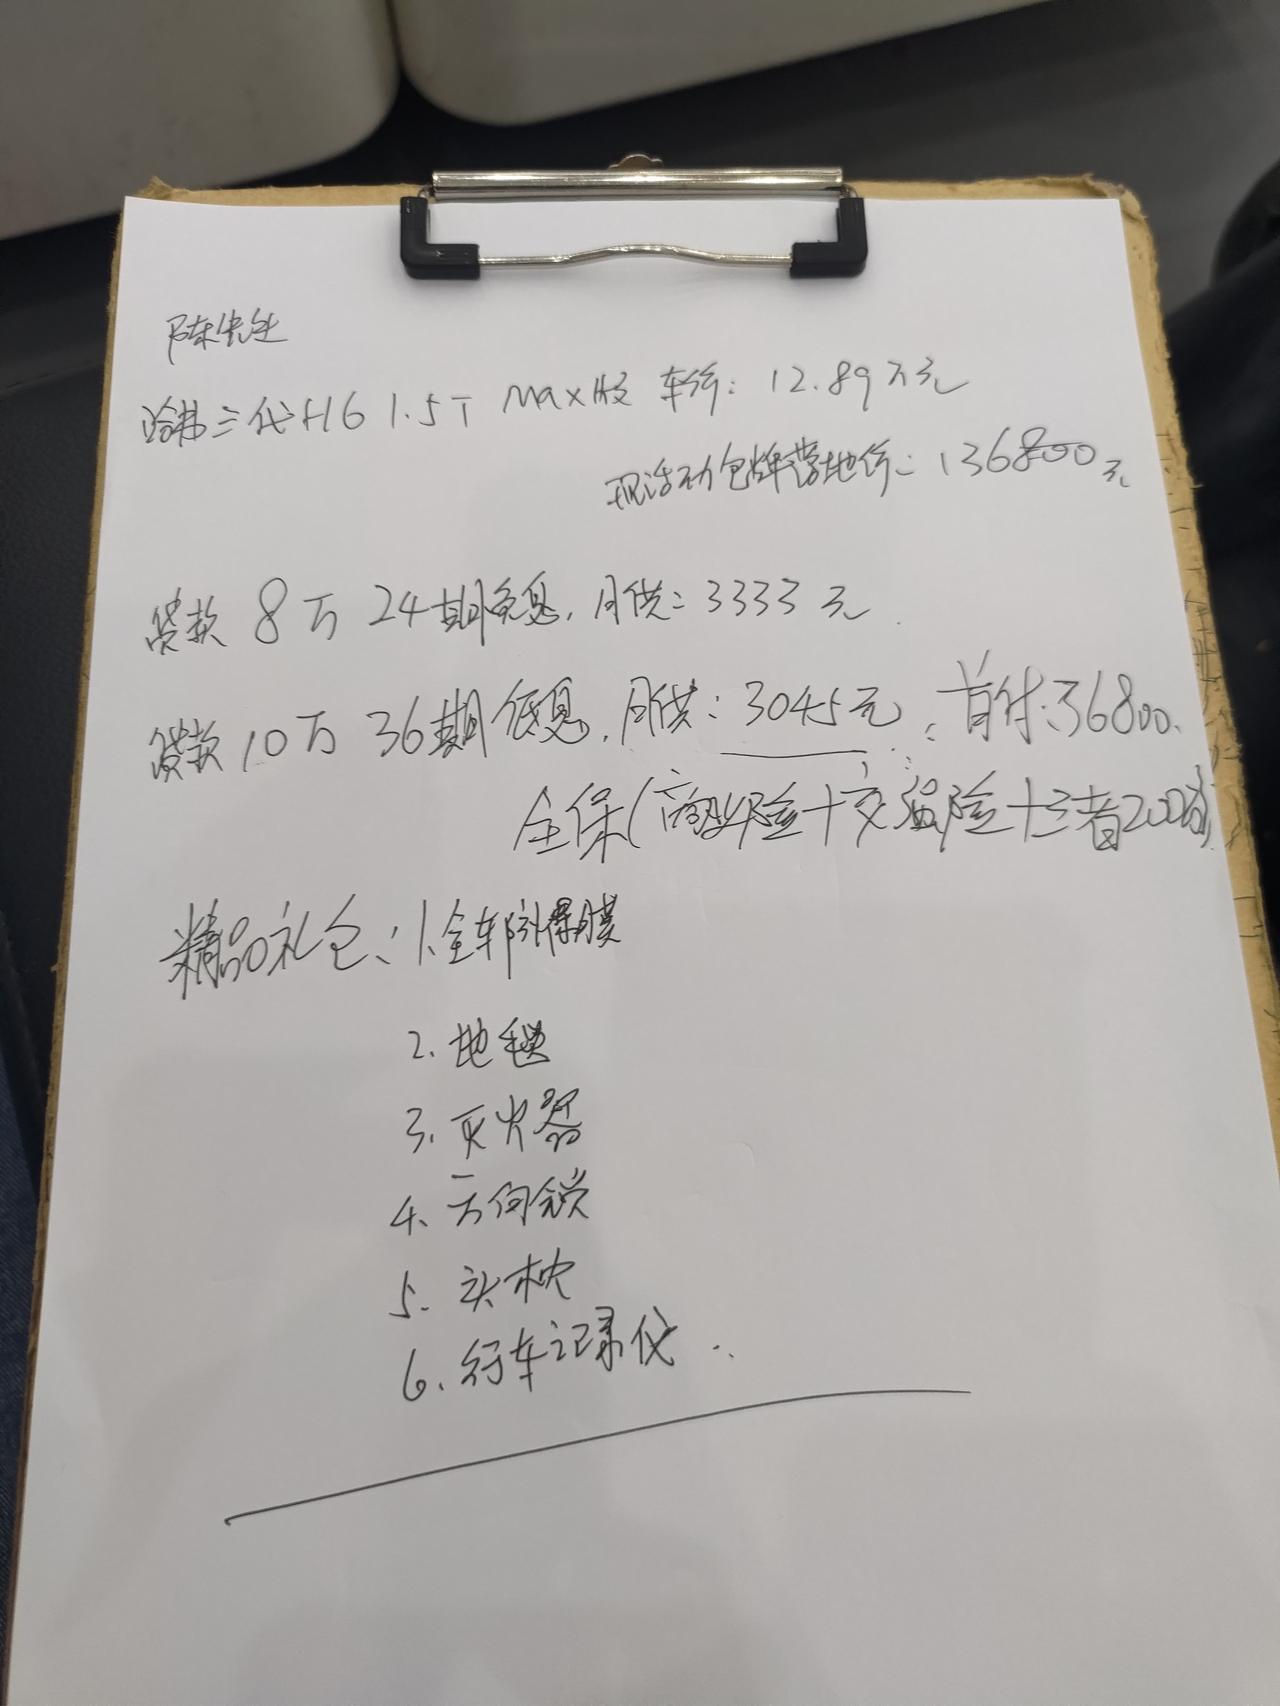 陈先生
哈弗三代H6 1.5T Max版 车价: 12.89万元
现活动包牌落地价: 136800元
贷款 8万 24期免息, 月供: 3333元
贷款 10万 36期低息, 月供: 3045元, 首付: 36800.
全保(商业险+交强险+三者200万)
精品礼包: 1.全车防爆膜
2. 地毯
3. 灭火器
4. 方向锁
5. 头枕
6. 行车记录仪